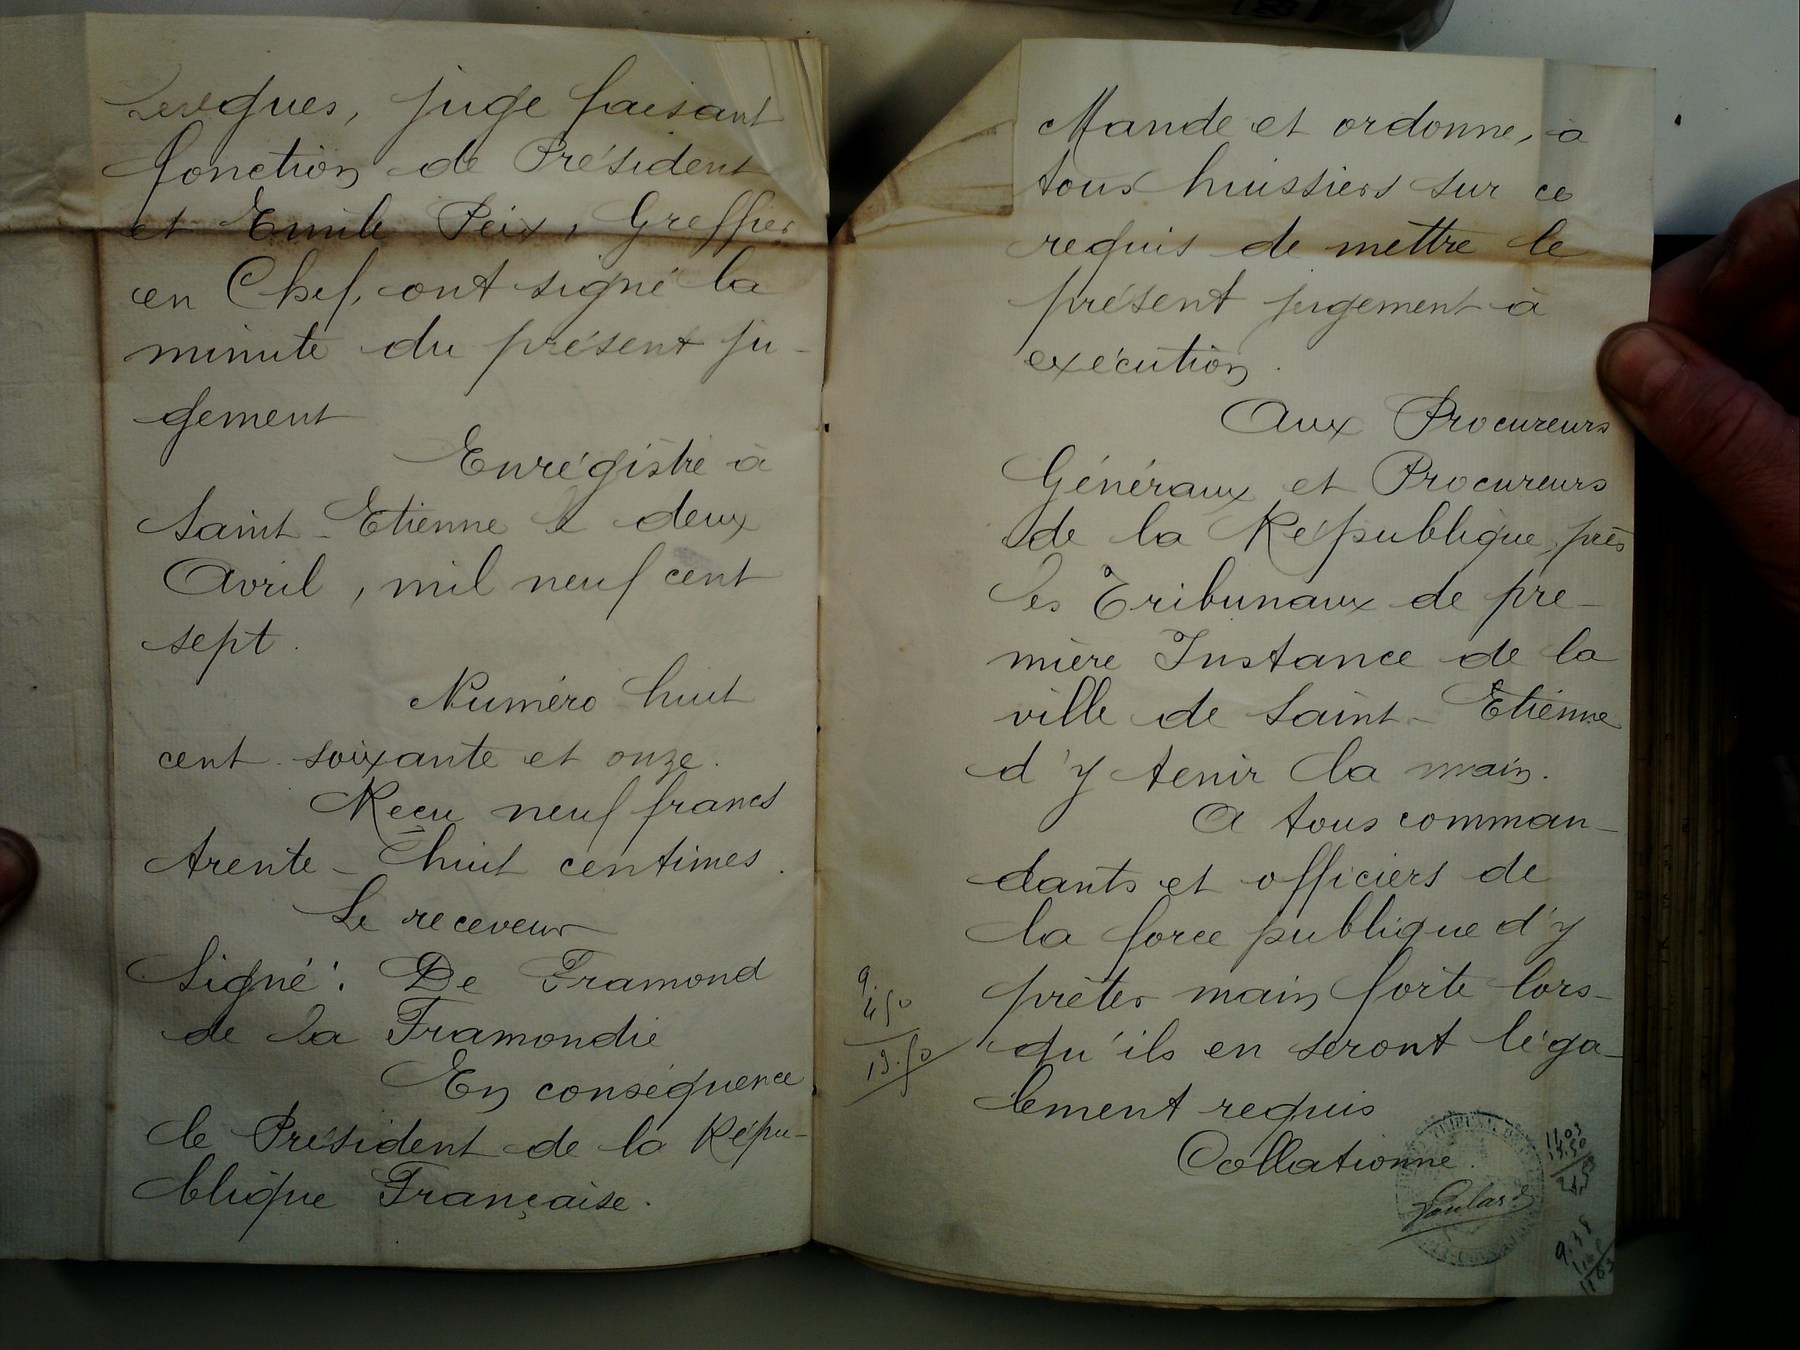 juge faisant
fonction de Président
et Emile Peix, Greffier
en Chef, ont signé la
minute du présent ju-
gement
Enrégistré à
Saint-Etienne le deux
Avril, mil neuf cent
sept.
Numéro huit
cent soixante et onze.
Reçu neuf francs
trente-huit centimes.
Le receveur
Signé: De Framond
de la Framondie
En conséquence
le Président de la Répu-
blique Française.
Mande et ordonne, à
tous huissiers sur ce
requis de mettre le
présent jugement à
exécution.
Aux Procureurs
Généraux et Procureurs
de la République, près
les Tribunaux de pre-
mière Instance de la
ville de Saint-Etienne
d'y tenir la main.
A tous comman-
dants et officiers de
la force publique d'y
prêter main forte lors-
qu'ils en seront léga-
lement requis
Collationné.
9.
4 50
13.50
11.03
13.50
9.38